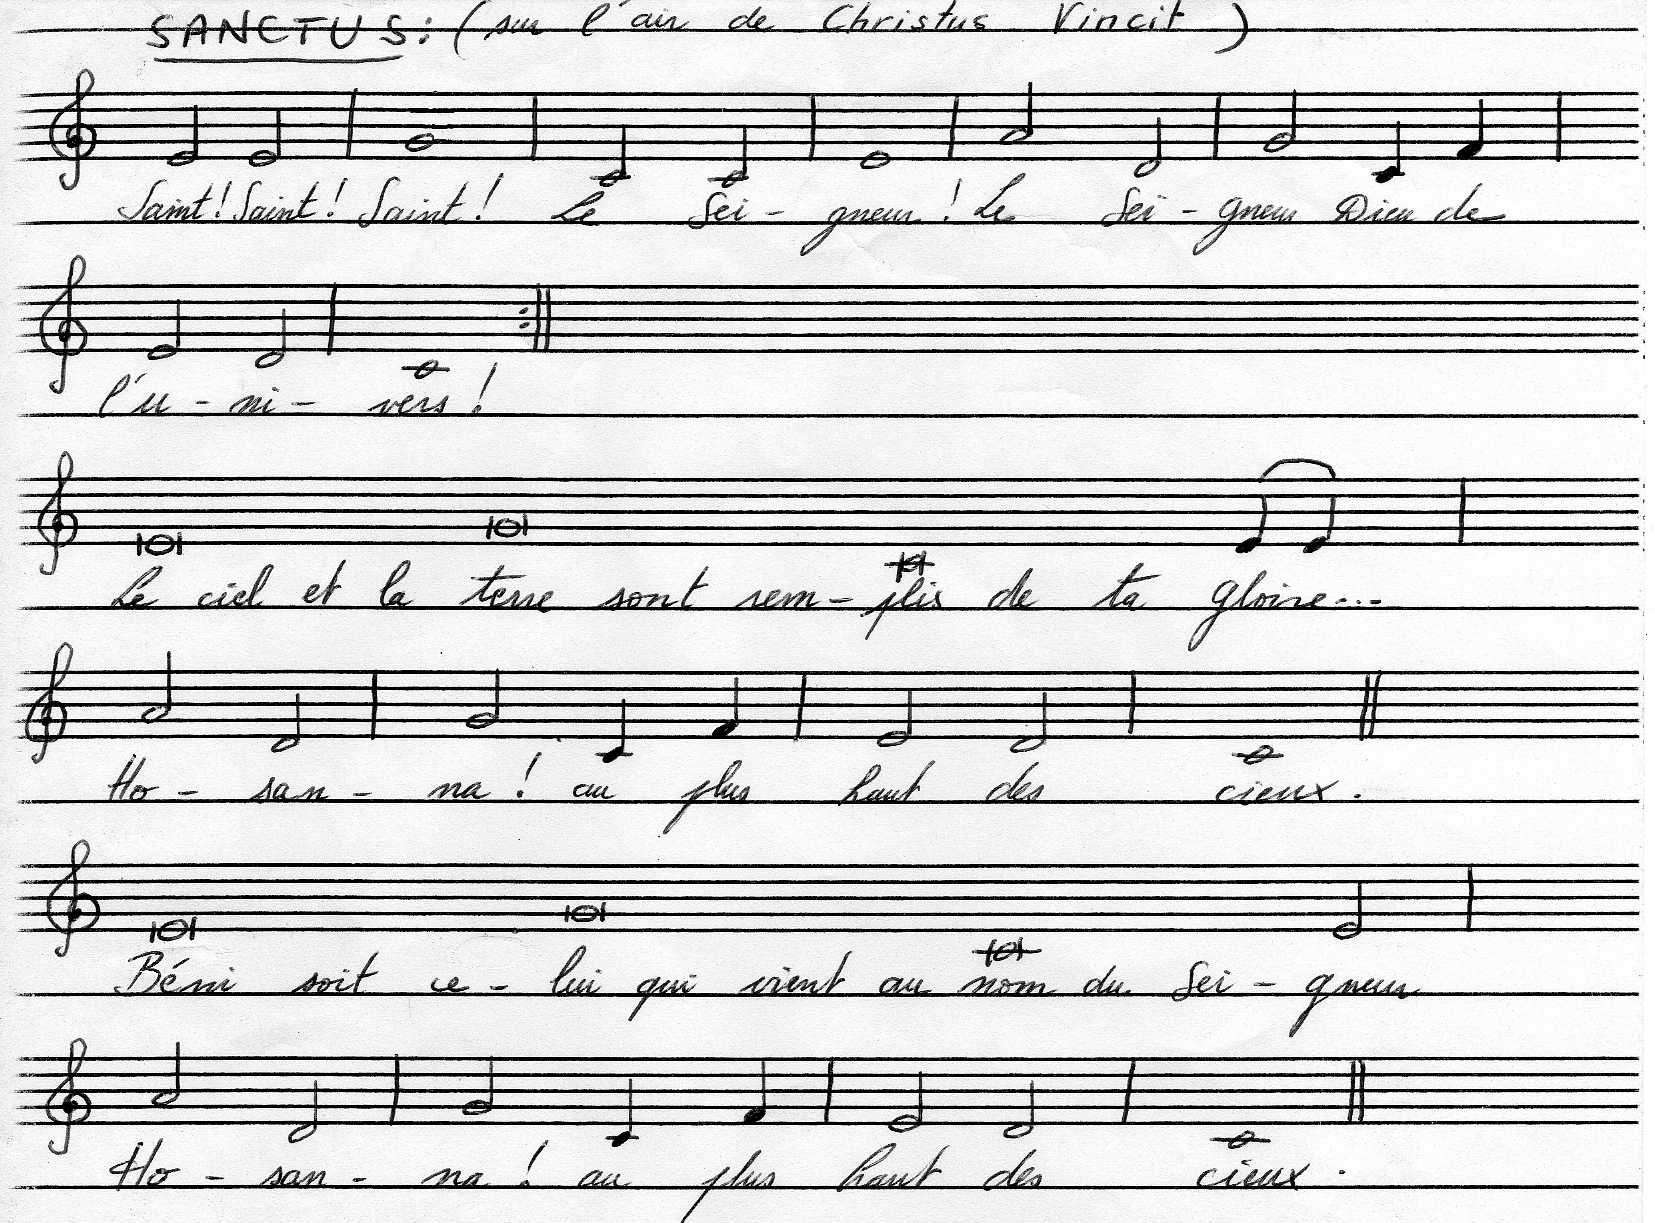 SANCTUS : (sur l'air de Christus Vincit)
Saint ! Saint ! Saint ! Le Sei - gneur ! Le Sei - gneur Dieu de
l'u - ni - vers !
Le ciel et la terre sont rem - plis de ta gloire...
Ho - san - na ! au plus haut des cieux.
Béni soit ce - lui qui vient au nom du Sei - gneur
Ho - san - na ! au plus haut des cieux.